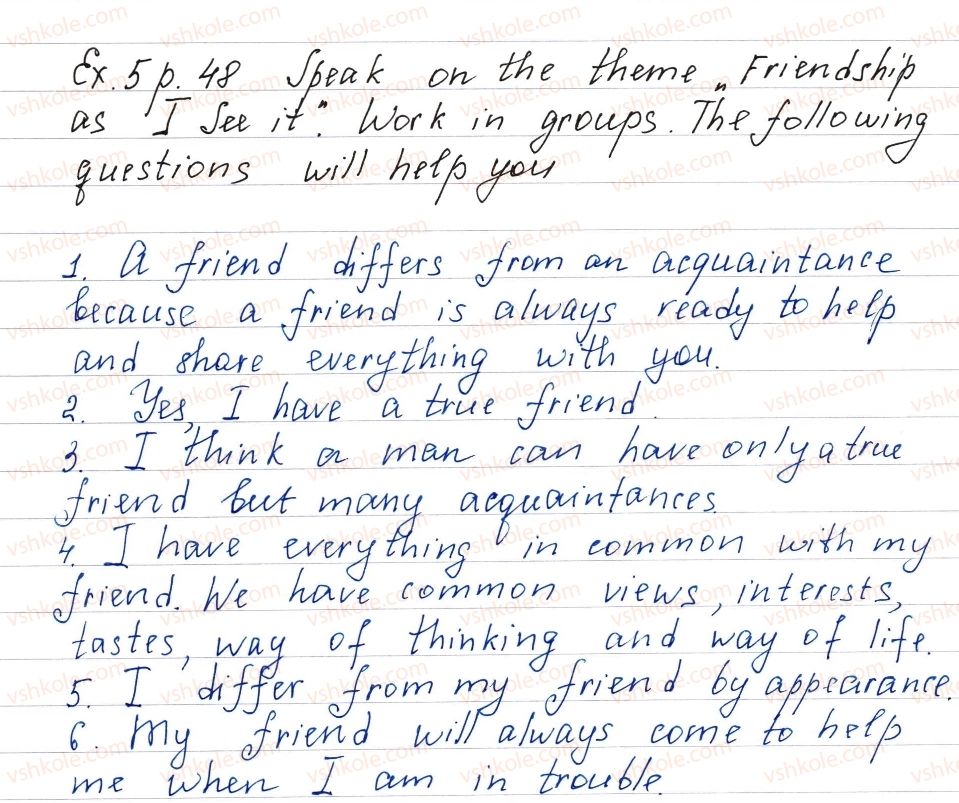 Ex. 5 p. 48 Speak on the theme „Friendship
as I see it". Work in groups. The following
questions will help you
1. A friend differs from an acquaintance
because a friend is always ready to help
and share everything with you.
2. Yes, I have a true friend.
3. I think a man can have only a true
friend but many acquaintances.
4. I have everything in common with my
friend. We have common views, interests,
tastes, way of thinking and way of life.
5. I differ from my friend by appearance.
6. My friend will always come to help
me when I am in trouble.
vshkole.com